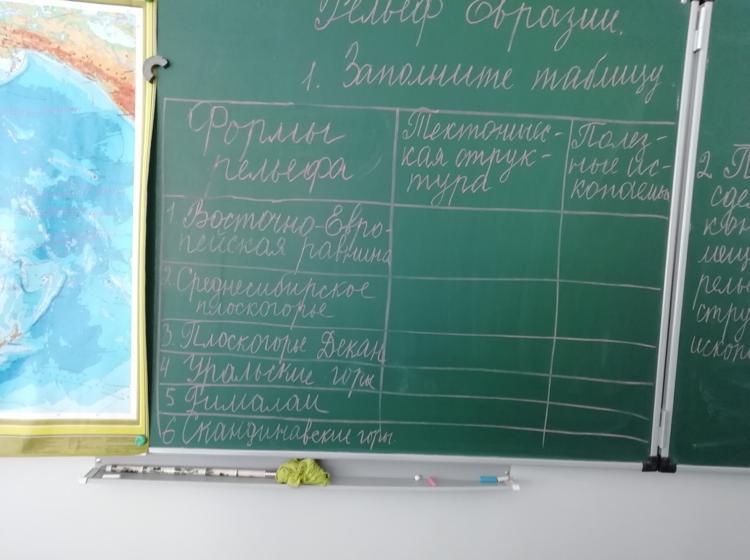 Рельеф Евразии.
1. Заполните таблицу
Формы
рельефа
Тектоничес-
кая струк-
тура
Полез-
ные ис-
копаемые
1 Восточно-Евро-
пейская равнина
2. Среднесибирское
плоскогорье
3. Плоскогорье Декан
4 Уральские горы
5 Гималаи
6 Скандинавские горы.
2 П
сде
кон
мещ
рель
стру
ископ